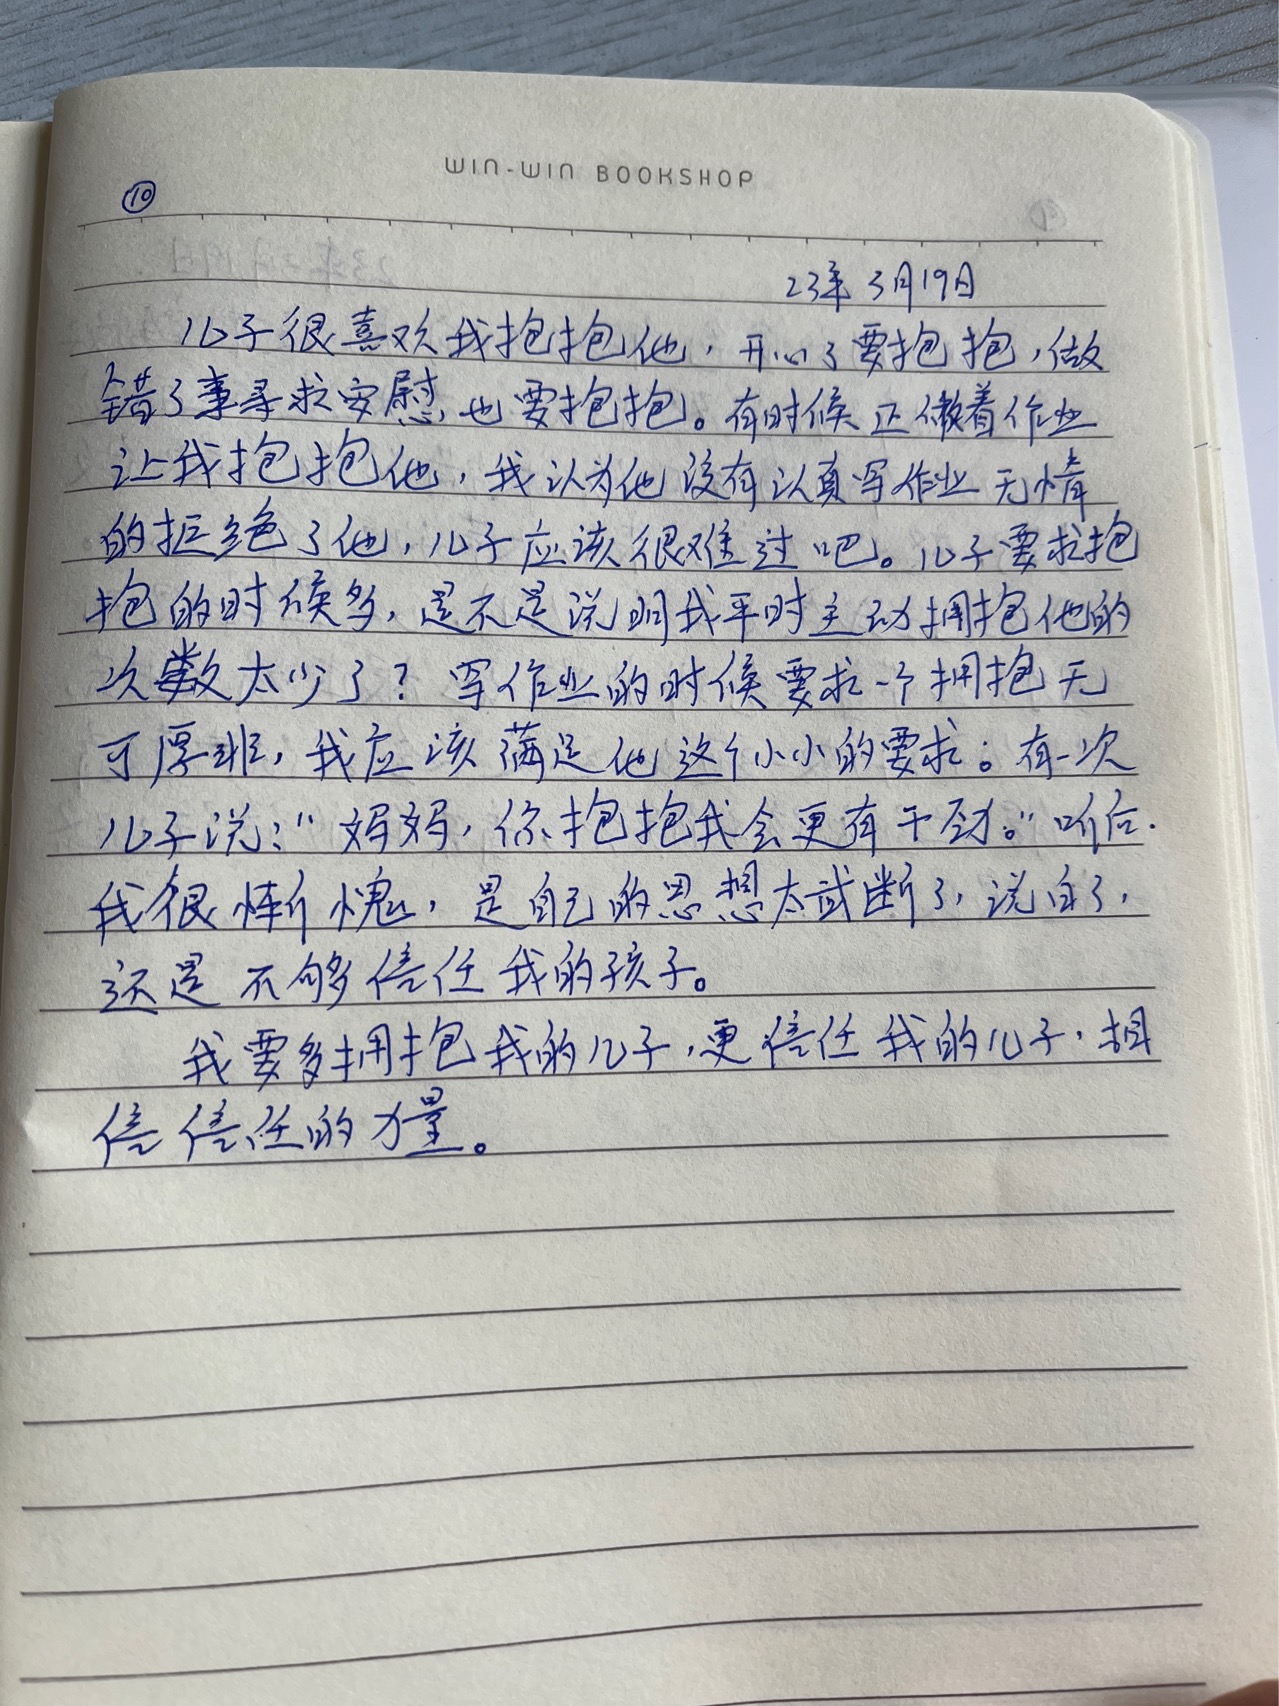 WIN-WIN BOOKSHOP
⑩
23年3月19日
儿子很喜欢我抱抱他，开心了要抱抱，做
错了事寻求安慰也要抱抱。有时候正做着作业
让我抱抱他，我认为他没有认真写作业无情
的拒绝了他，儿子应该很难过吧。儿子要求抱
抱的时候多，是不是说明我平时主动拥抱他的
次数太少了？写作业的时候要求一个拥抱无
可厚非，我应该满足他这个小小的要求。有一次
儿子说：“妈妈，你抱抱我会更有干劲。”听后
我很惭愧，是自己的思想太武断了，说白了，
还是不够信任我的孩子。
我要多拥抱我的儿子，更信任我的儿子，相
信信任的力量。